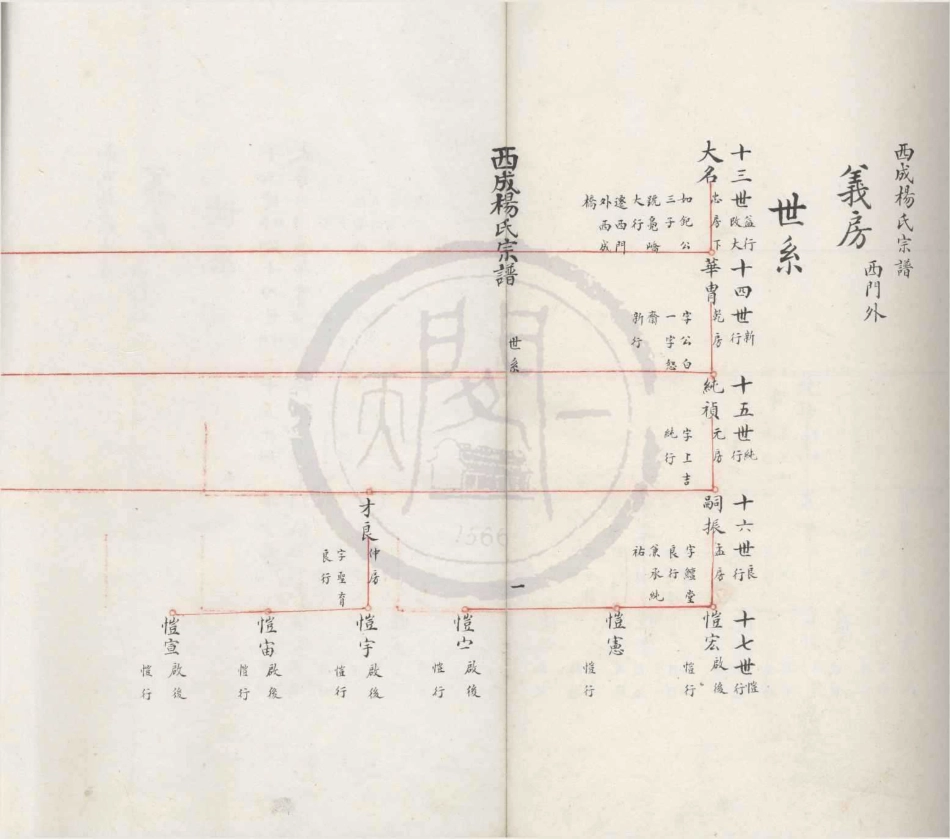 西成楊氏宗譜
義房 西門外
世系
十三世 益行改大
大名 忠房下
如
公
三子
大行
遷西門
外西成
橋
十四世 新行
華胄 乾房
字公白
一字
齋
新行
十五世 純行
純禎 元房
字上吉
純行
十六世 良行
嗣振 孟房
字鱣堂
良行
兼承純
祐
十七世 愷行
愷宏 啟後
愷行
愷憲
愷行
西成楊氏宗譜
世系
一
啟後
愷行
才良 仲房
字聖育
良行
愷宇 啟後
愷行
愷宙 啟後
愷行
愷宣 啟後
愷行
天一閣
1566